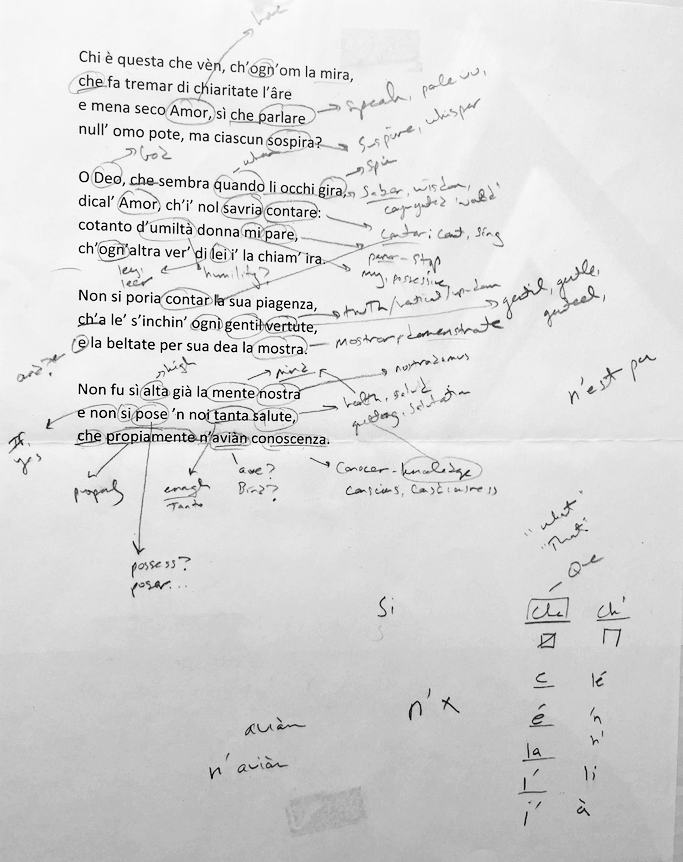 love
Chi è questa che vèn, ch'ogn'om la mira,
che fa tremar di chiaritate l'âre
e mena seco Amor, sì che parlare
speak,
null' omo pote, ma ciascun sospira?
suspire, whisper
God
when
spin
O Deo, che sembra quando li occhi gira,
Saber, wisdom,
dical' Amor, ch'i' nol savria contare:
conjugated 'would'
cotanto d'umiltà donna mi pare,
cantar: cant, sing
ch'ogn'altra ver' di lei i' la chiam' ira.
parar - stop
my, possessive
ley,
leer
humility?
Non si poria contar la sua piagenza,
gentil, gentle,
genteel,
ch'a le' s'inchin' ogni gentil vertute,
e la beltate per sua dea la mostra.
mostrar, demonstrate
high
mind
nostradamus
Non fu sì alta già la mente nostra
health, salud
e non si pose 'n noi tanta salute,
greeting, salutation
che propiamente n'aviàn conoscenza.
n'est pa
If,
yes
enough
Tanto
ave?
Bird?
conocer - knowledge
possess?
poser...
"what"
"That"
Que
Si
che ch'
c lé
é 'n
la n'
l' li
i' à
n' x
aviàn
n' aviàn